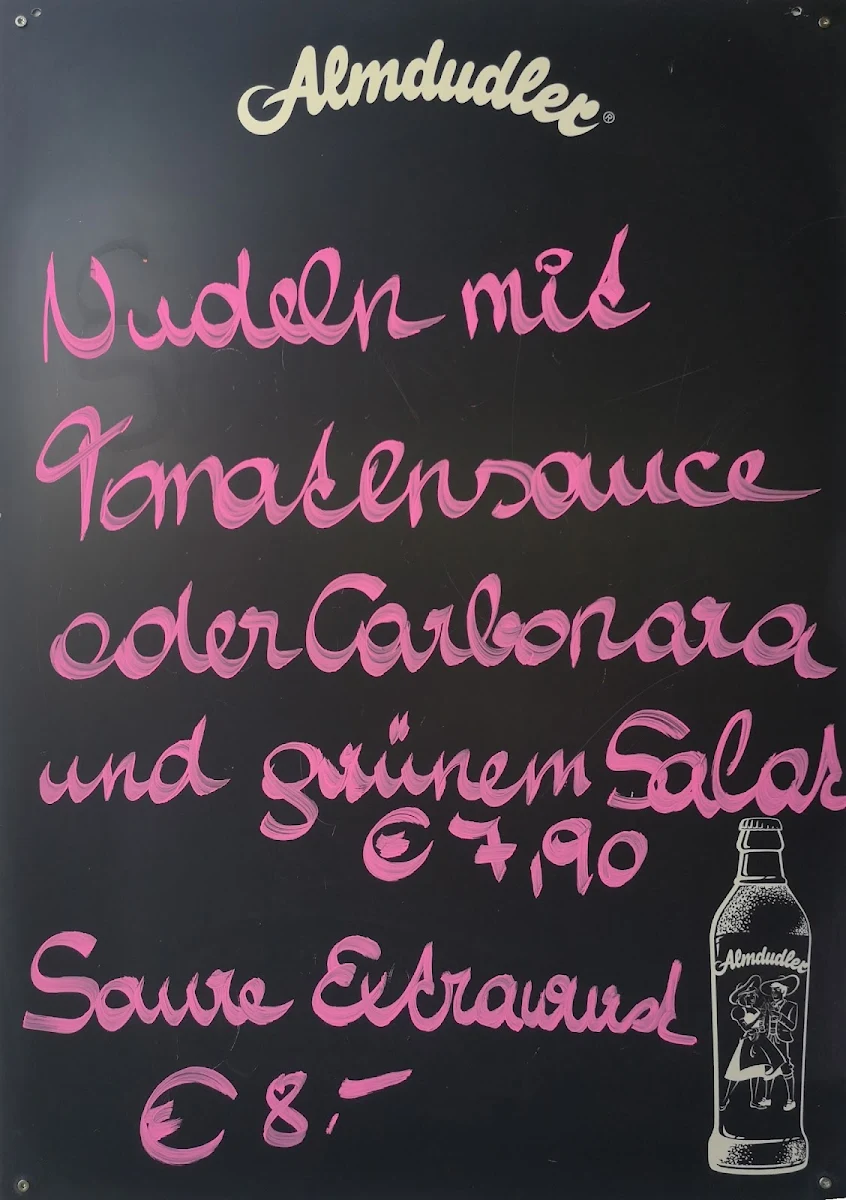 Almdudler®
Nudeln mit
Tomatensauce
oder Carbonara
und grünem Salat
€ 7,90
Saure Extrawurst
€ 8.-
Almdudler